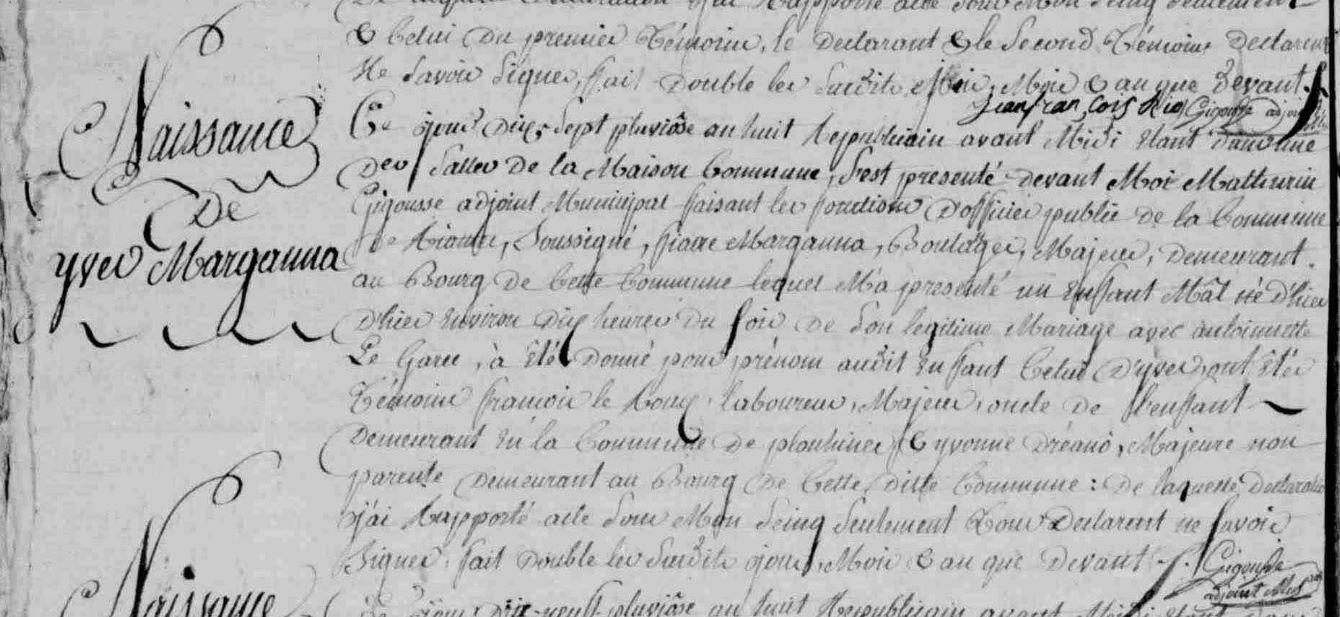 & Celui du premier Témoin, le declarant & le Second Témoins Declarent
Ne Savoir Signer, fait Double les Susdits jour, Mois & an que devant.
Jean françois Rio Gigousse adjoint
Naissance
De
yves Marganna
Ce jour Dix-sept pluviôse an huit Republicain avant Midi Etant dans une
Des Salles de la Maison Commune, S'est presenté devant Moi Mathurin
Gigousse adjoint Municipal faisant les fonctions D'officier public de la Commune
de Riantec, Soussigné, pierre Marganna, Boulager, Majeur, Demeurant
au Bourg de Cette Commune lequel M'a presenté un Enffant Mâl né D'hier
D'hier Environ Dix heures du Soir de Son legitime Mariage avec antoinnette
Le Garec, à été Donné pour prénom audit Enffant Celui D'yves, ont Etés
Témoins francois le Roux, laboureur, Majeur, oncle de l'enffant
Demeurant En la Commune de plouhinec & yvonne Dréano, Majeure non
parente Demeurant au Bourg de Cette Ditte Commune : De laquelle Declaration
J'ai Rapporté acte Sous Mon Seing Seulement Tous Declarent ne Savoir
Signer, fait Double les Susdits jour, Mois & an que Devant.
Gigousse
adjoint
Naissance
Ce jour Dix-neuf pluviôse an huit Republicain avant Midi Etant dans